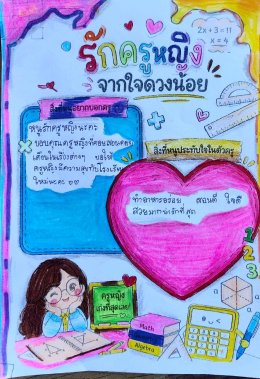 2x + 3 = 11
x = 4
รักครูหญิง
จากใจดวงน้อย
สิ่งที่หนูอยากบอกครู
หนูรักครูหญิงนะคะ
ขอบคุณครูหญิงที่คอยสอนคอย
เตือนในเรื่องต่างๆ ขอให้
ครูหญิงมีความสุขกับโรงเรียน
ใหม่นะคะ
สิ่งที่หนูประทับใจในตัวครู
ทำอาหารอร่อย สอนดี ใจดี
สวยมากน่ารักที่สุด
ครูหญิง
เก่งที่สุดเลย!
Math
Algebra
1
2
3